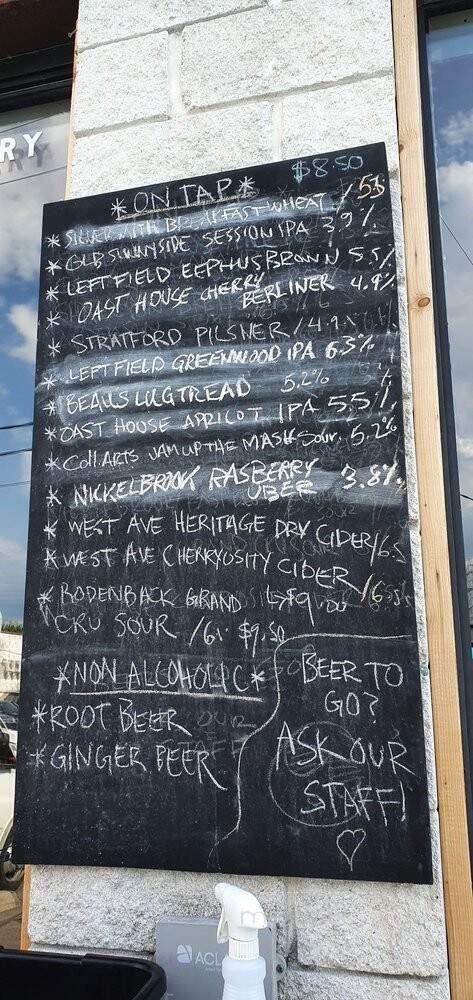 RY
$8.50
*ON TAP*
* SILVERSMITH BREAKFAST WHEAT / 5.5
* GLB SUNNYSIDE SESSION IPA 3.9%
* LEFT FIELD EEPHUS BROWN 5.5%
* OAST HOUSE CHERRY BERLINER 4.9%
* STRATFORD PILSNER / 4.9%
* LEFT FIELD GREENWOOD IPA 6.3%
* BEAUS LUGTREAD 5.2%
* OAST HOUSE APRICOT IPA 5.5%
* COLL. ARTS JAM UP THE MASH SOUR. 5.2%
* NICKELBROOK RASBERRY UBER 3.8%
* WEST AVE HERITAGE DRY CIDER / 6.5
* WEST AVE CHERRYOSITY CIDER / 6.5%
* RODENBACK GRAND
CRU SOUR /6%. $9.50
*NON ALCOHOLIC*
*ROOT BEER
*GINGER BEER
BEER TO
GO?
ASK OUR
STAFF!
ACL